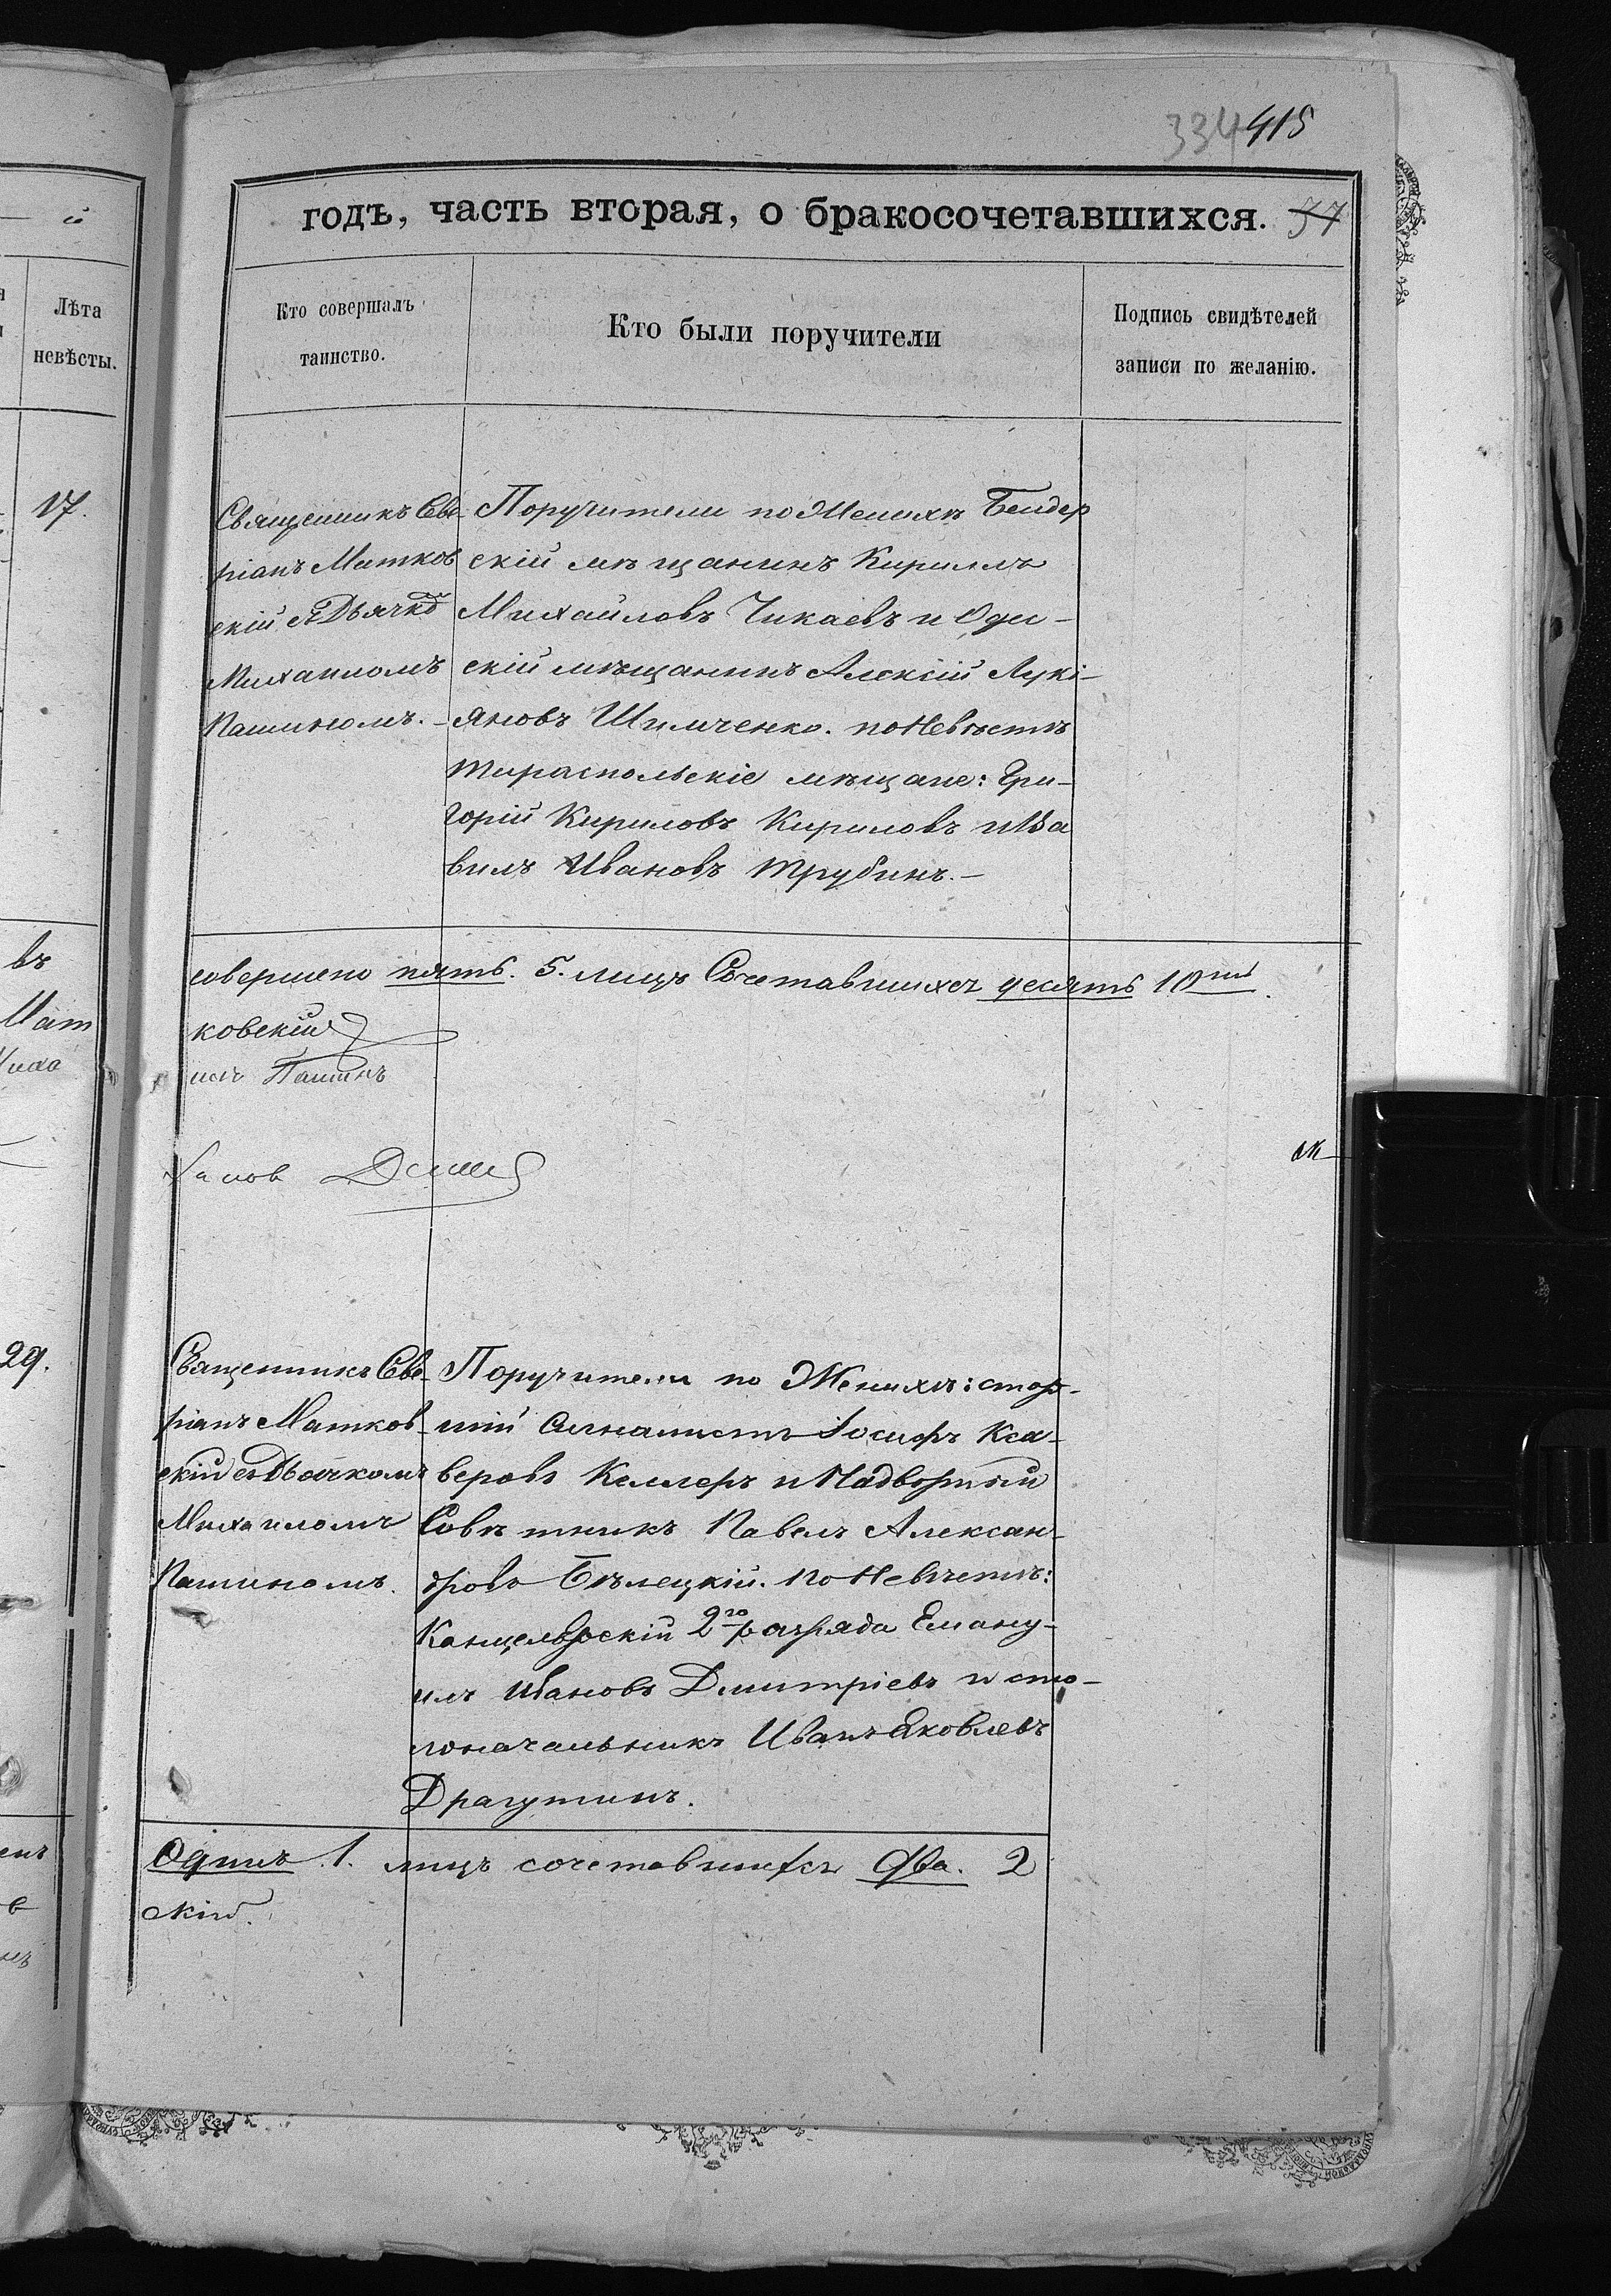 334 415
годъ, часть вторая, о бракосочетавшихся. 37
й
Лѣта
невѣсты.
Кто совершалъ
таинство.
Кто были поручители
Подпись свидѣтелей
записи по желанію.
17.
Священникъ Све-
ріанъ Матков
скій съ Дьячко
Михаиломъ
Пашиномъ.
Поручители по Женихѣ Бендер
скій мѣщанинъ Кириллъ
Михайловъ Чикаевъ и Одес-
скій мѣщанинъ Алексій Лукі-
яновъ Шимченко. по Невѣстѣ
Тираспольскіе мѣщане: Гри-
горій Кириловъ Кириловъ и Ва
вилъ Ивановъ Трубинъ.
въ
совершено пять. 5. лицъ Сочетавшихся десять 10ть.
Мат
ковскій
Миха
илъ Пашинъ
29.
Священникъ Све-
ріанъ Матков-
скій съ Дьячкомъ
Михаиломъ
Пашиномъ.
Поручители по Женихѣ: стар-
шій Сигналистъ Іосифъ Кса-
веровъ Келлеръ и Надворный
Совѣтникъ Павелъ Алексан-
дровъ Бѣлецкій. по Невѣстѣ:
Канцелярскій 2го разряда Еману-
илъ Ивановъ Дмитріевъ и сто-
лоначальникъ Иванъ Яковлевъ
Драгутинъ.
Одинъ 1. лицъ сочетавшихся Два. 2
скій.